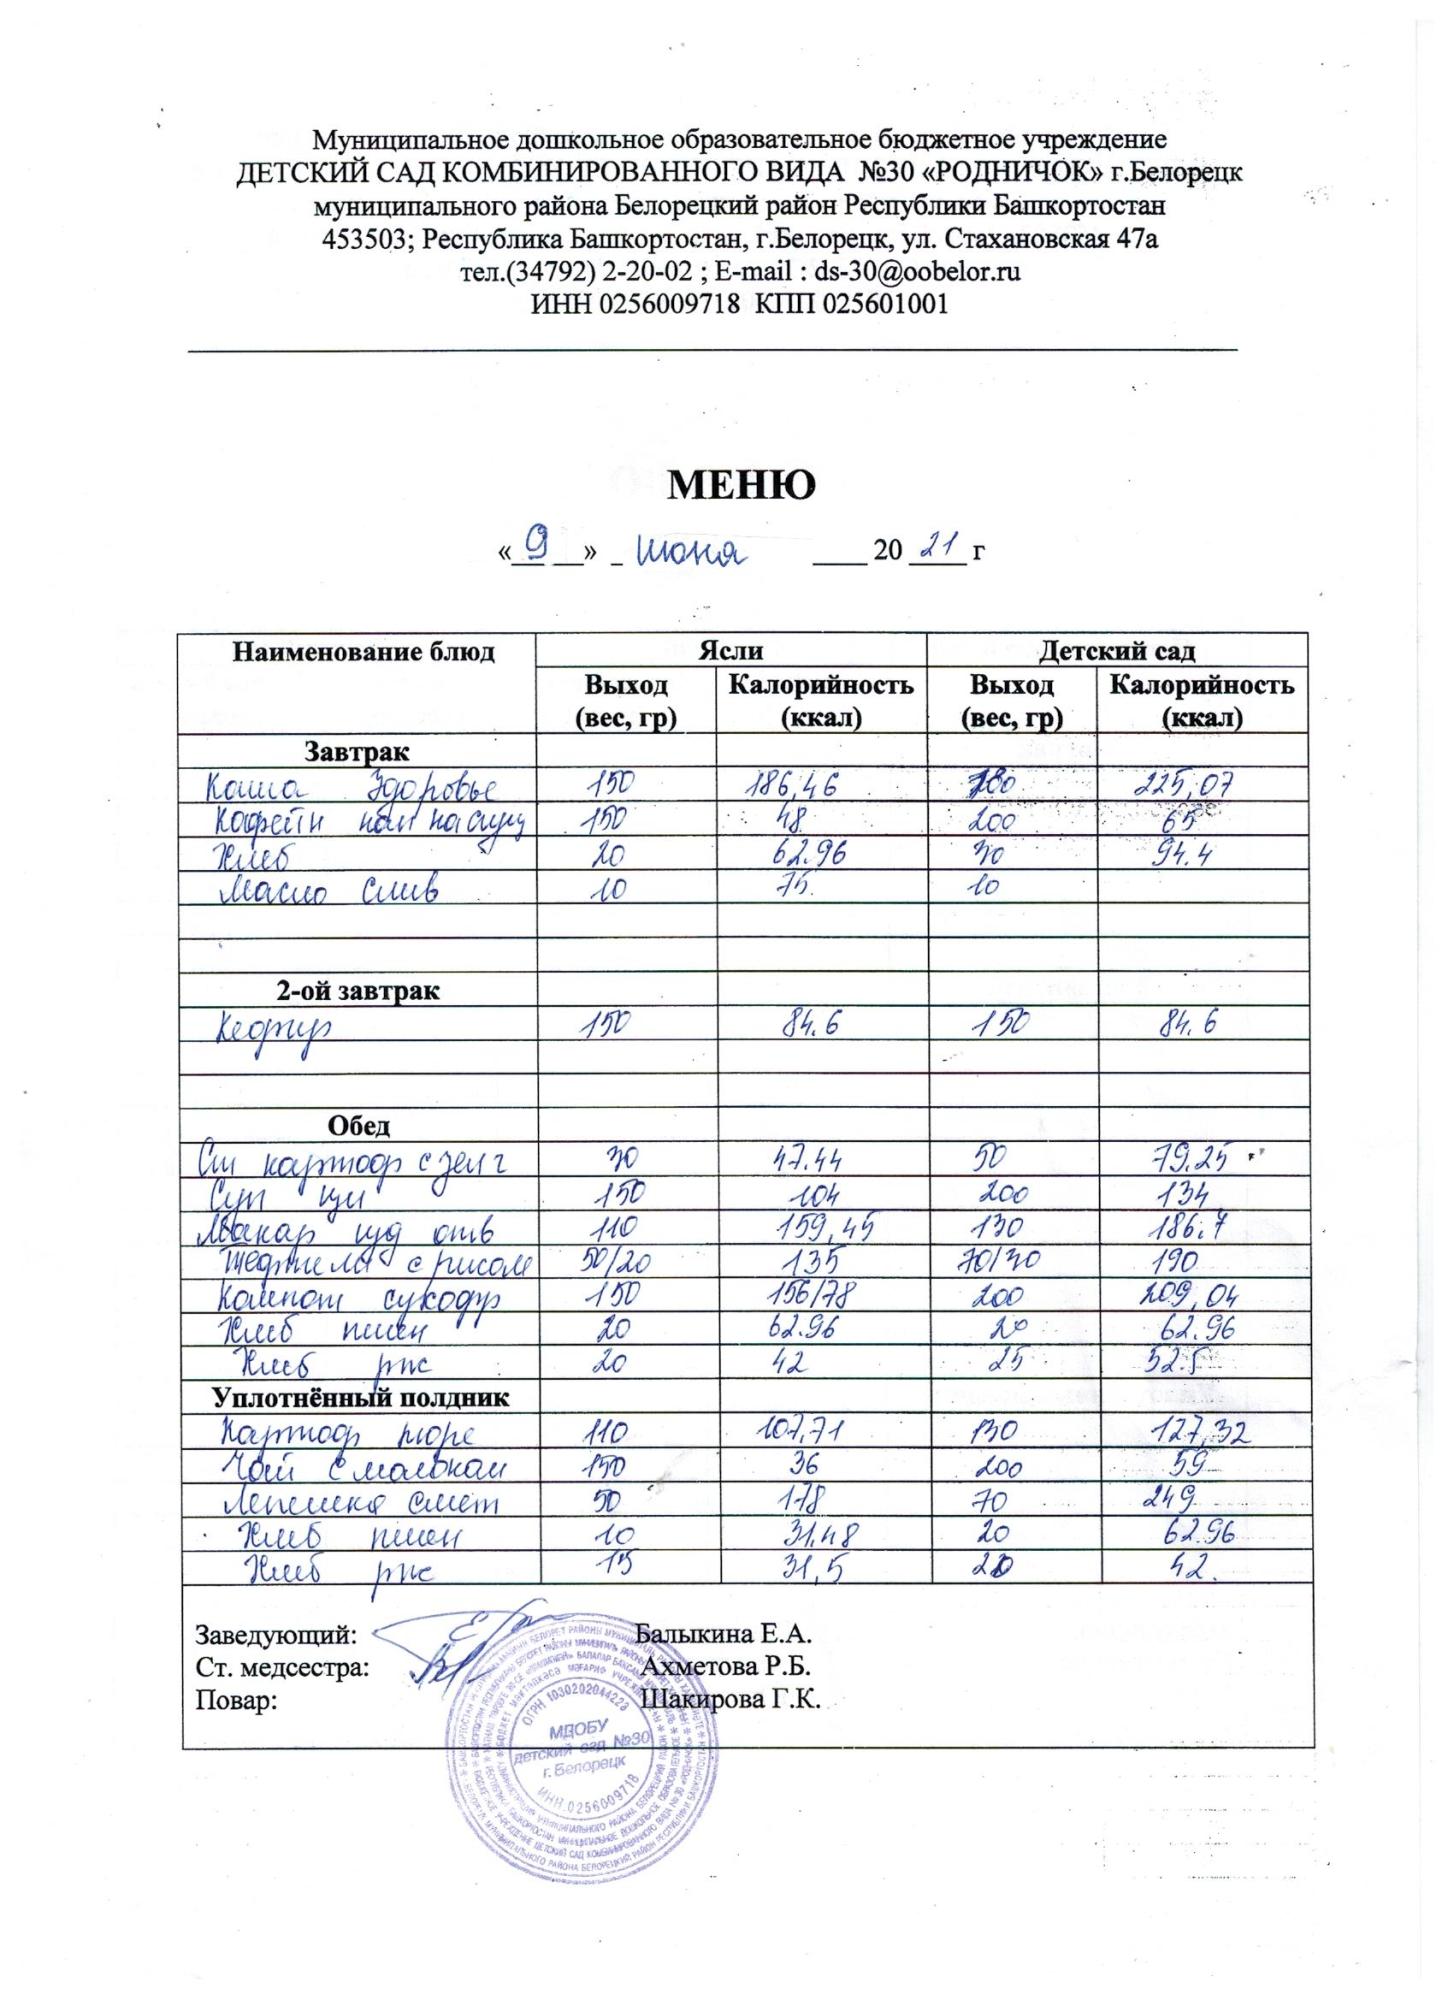 Муниципальное дошкольное образовательное бюджетное учреждение
ДЕТСКИЙ САД КОМБИНИРОВАННОГО ВИДА №30 «РОДНИЧОК» г.Белорецк
муниципального района Белорецкий район Республики Башкортостан
453503; Республика Башкортостан, г.Белорецк, ул. Стахановская 47а
тел.(34792) 2-20-02 ; E-mail : ds-30@oobelor.ru
ИНН 0256009718 КПП 025601001
МЕНЮ
« 9 » июня 20 21 г
Наименование блюд Ясли Детский сад
Выход (вес, гр) Калорийность (ккал) Выход (вес, гр) Калорийность (ккал)
Завтрак
Каша Здоровье 150 186,46 180 225,07
Кофейн нап 150 48 200 65
Хлеб 20 62.96 30 94.4
Масло слив 10 75 10
2-ой завтрак
Кефир 150 84.6 150 84.6
Обед
картоф с зел г 30 47.44 50 79.25
Суп щи 150 104 200 134
Макар изд отв 110 159,45 130 186.7
с рисом 50/20 135 70/30 190
Компот сухофр 150 156/78 200 209,04
Хлеб пшен 20 62.96 20 62.96
Хлеб рж 20 42 25 52.5
Уплотнённый полдник
Картоф пюре 110 107,71 130 127,32
Чай с молоком 150 36 200 59
Лепешка смет 50 178 70 249
Хлеб пшен 10 31.48 20 62.96
Хлеб рж 15 31,5 20 42.
Заведующий: Балыкина Е.А.
Ст. медсестра: Ахметова Р.Б.
Повар: Шакирова Г.К.
ОГРН 1030202044228
МДОБУ
детский сад №30
г. Белорецк
ИНН.0256009718